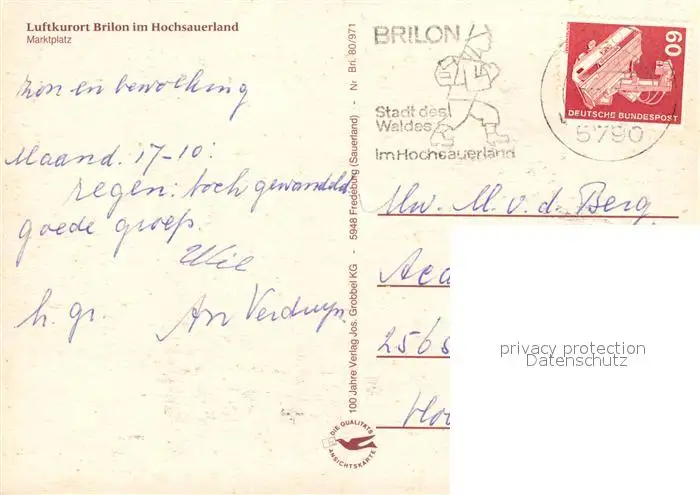 Luftkurort Brilon im Hochsauerland
Marktplatz
zon en bewolking
Maand. 17-10:
regen: toch gewandeld.
goede groep.
Wie
h. gr. An Verdruyn.
Nr Bri. 80/971
5948 Fredeburg (Sauerland)
100 Jahre Verlag Jos. Grobbel KG
DIE QUALITÄTS
ANSICHTSKARTE
BRILON
Stadt des
Waldes
im Hochsauerland
60
DEUTSCHE BUNDESPOST
5790
Mw. M. v. d. Berg
Aca
256
Ho
privacy protection
Datenschutz